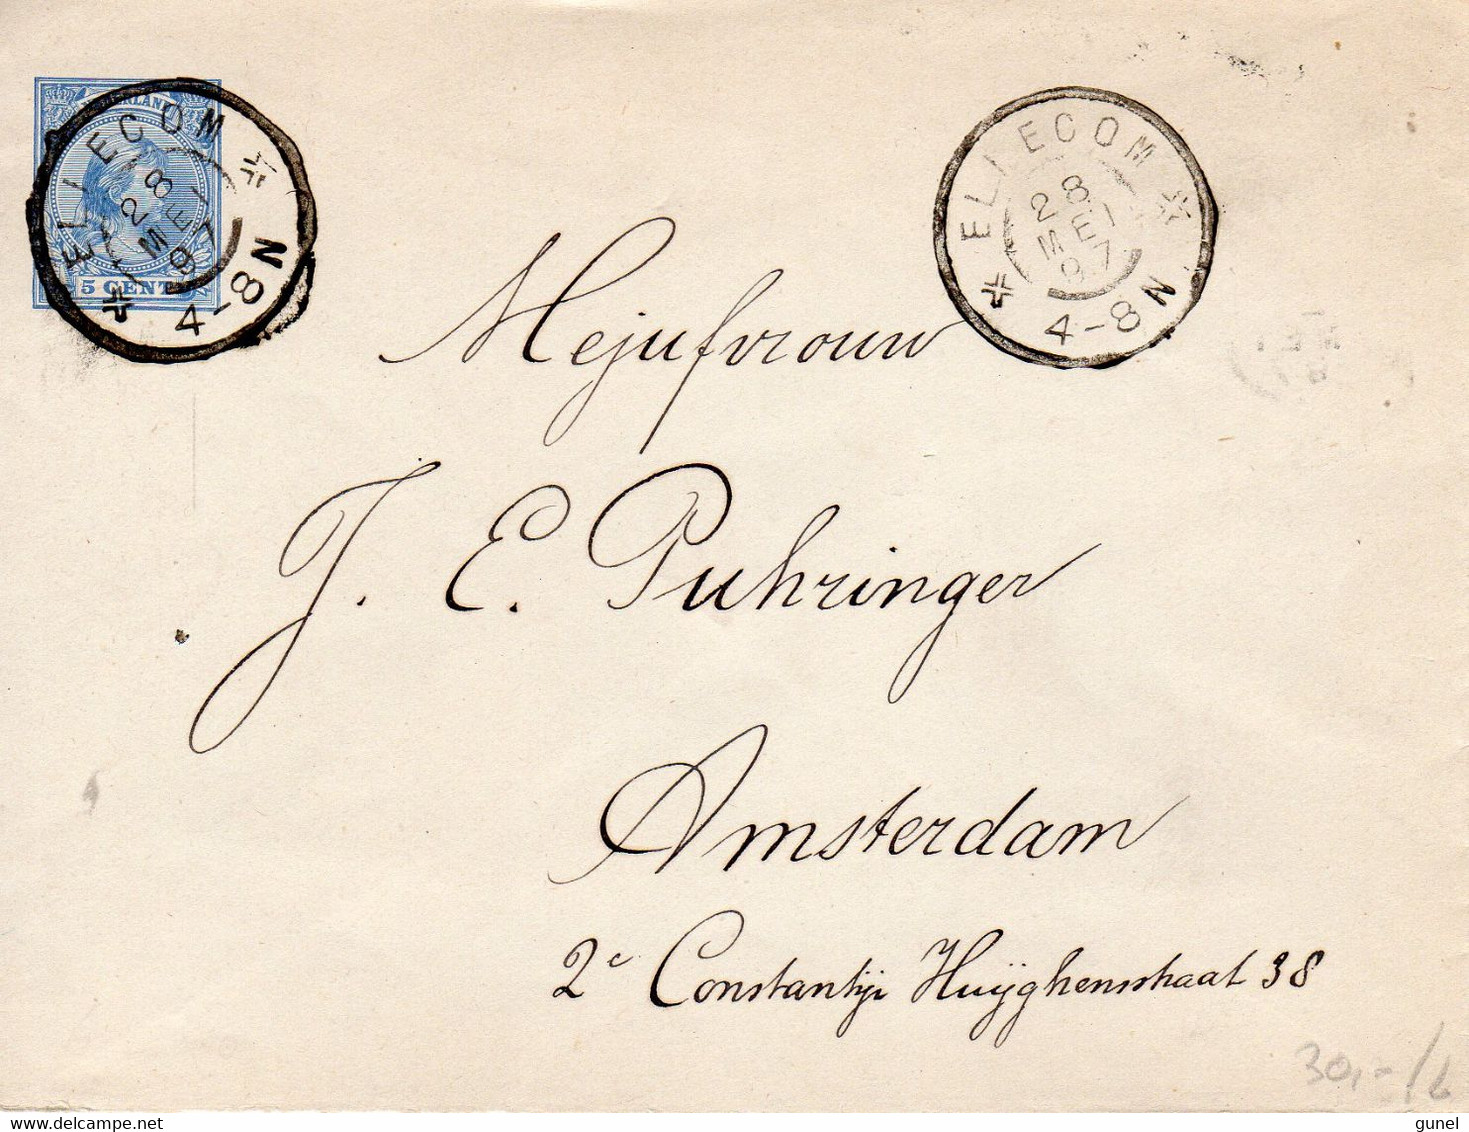 NEDERLAND
5 CENT
ELLECOM
28
MEI
97
4-8N
ELLECOM
28
MEI
97
4-8N
Mejufvrouw
J. E. Puhringer
Amsterdam
2e Constantijn Huijghensstraat 38
30,-
gunel